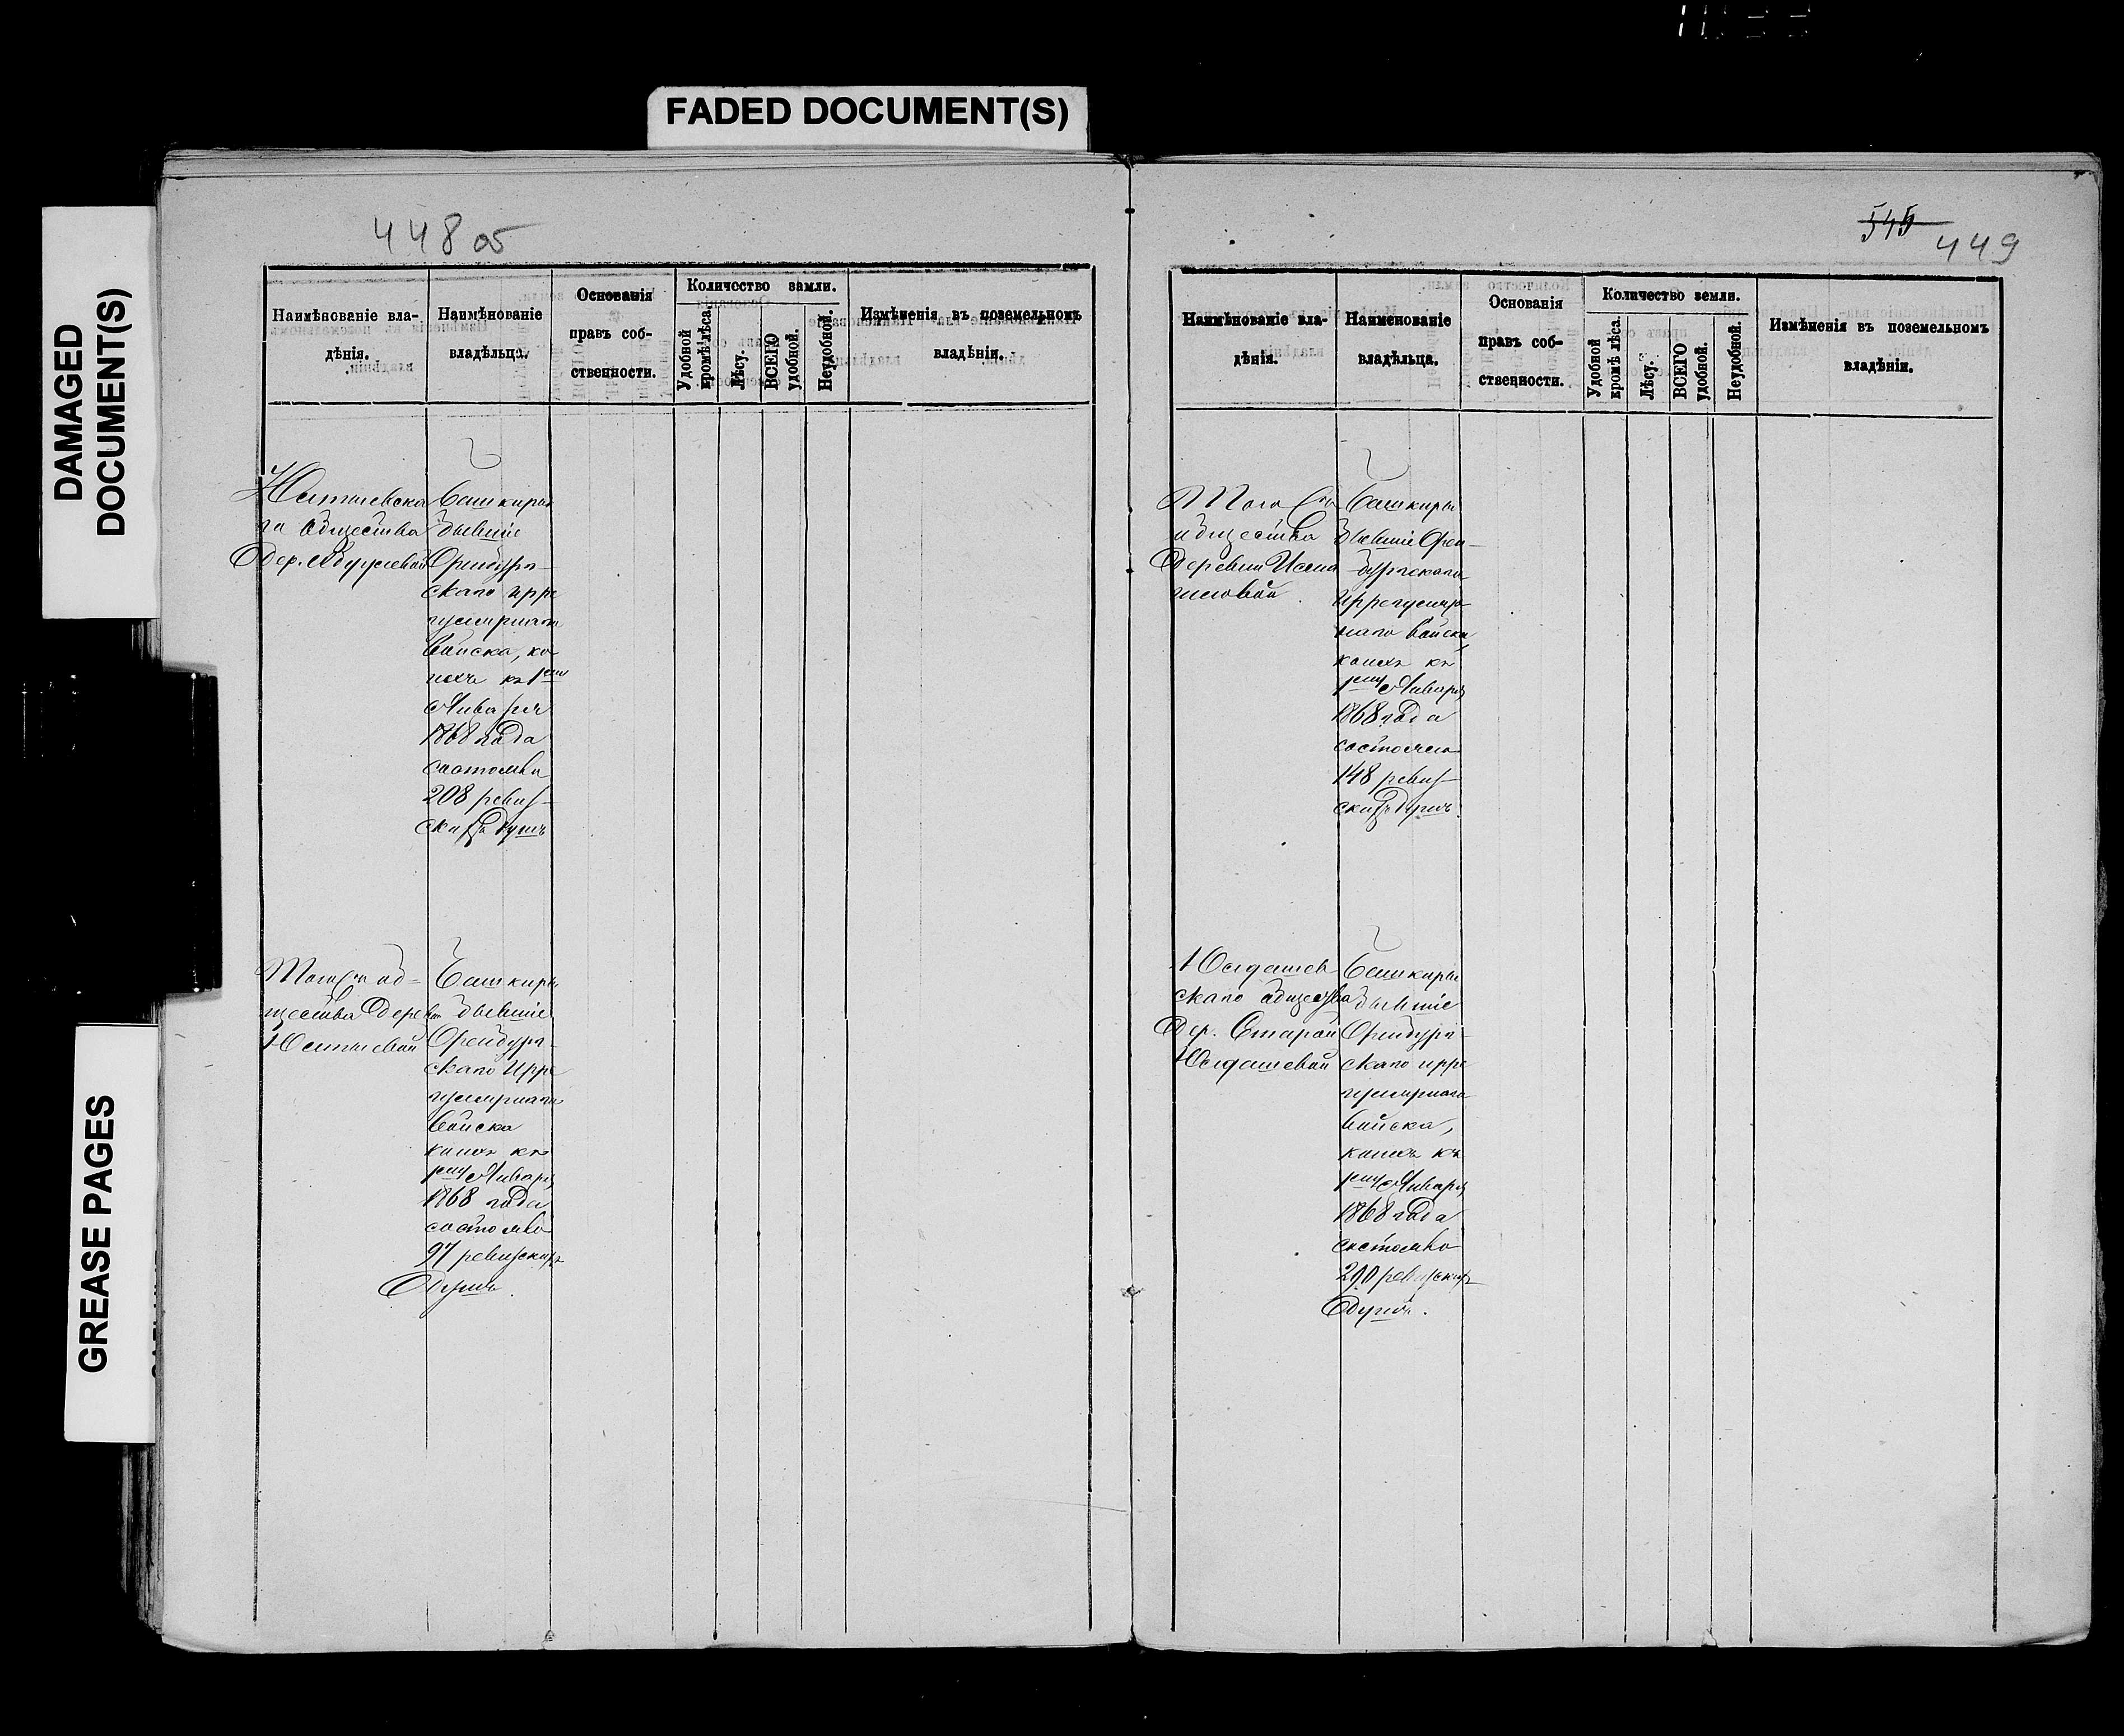 FADED DOCUMENT(S)
DAMAGED
DOCUMENT(S)
GREASE PAGES
448 об
Наимѣнованіе вла-
дѣнія.
Наимѣнованіе
владѣльца.
Основанія
правъ соб-
ственности.
Количество земли.
Удобной
кромѣ лѣса.
Лѣсу.
ВСЕГО
удобной.
Неудобной.
Измѣненія въ поземельномъ
владѣніи.
го общества
Башкиры
бывшіе
Оренбург-
скаго ирре
гулярнаго
войска, ко
ихъ къ 1му
Января
1868 года
состояло
208 ревиз-
скихъ душъ
Того же об-
щества дерев
Башкиры
бывшіе
Оренбург-
скаго Ирре
гулярнаго
войска
коихъ къ
1му Января
1868 года
состояло
97 ревизскихъ
душъ.
545
449
Наимѣнованіе вла-
дѣнія.
Наименованіе
владѣльца.
Основанія
правъ соб-
ственности.
Количество земли.
Удобной
кромѣ лѣса.
Лѣсу.
ВСЕГО
удобной.
Неудобной.
Измѣненія въ поземельномъ
владѣніи.
Того же
общества
деревни
Башкиры
бывшіе Орен-
бургскаго
Иррегуляр
наго войска,
коихъ къ
1му Января
1868 года
состояло
148 ревиз-
скихъ душъ.
Юлдашев
скаго общества
Дер. Старой
Юлдашевой
Башкиры
бывшіе
Оренбург-
скаго ирре
гулярнаго
войска,
коихъ къ
1му Января
1868 года
состояло
290 ревизскихъ
душъ.